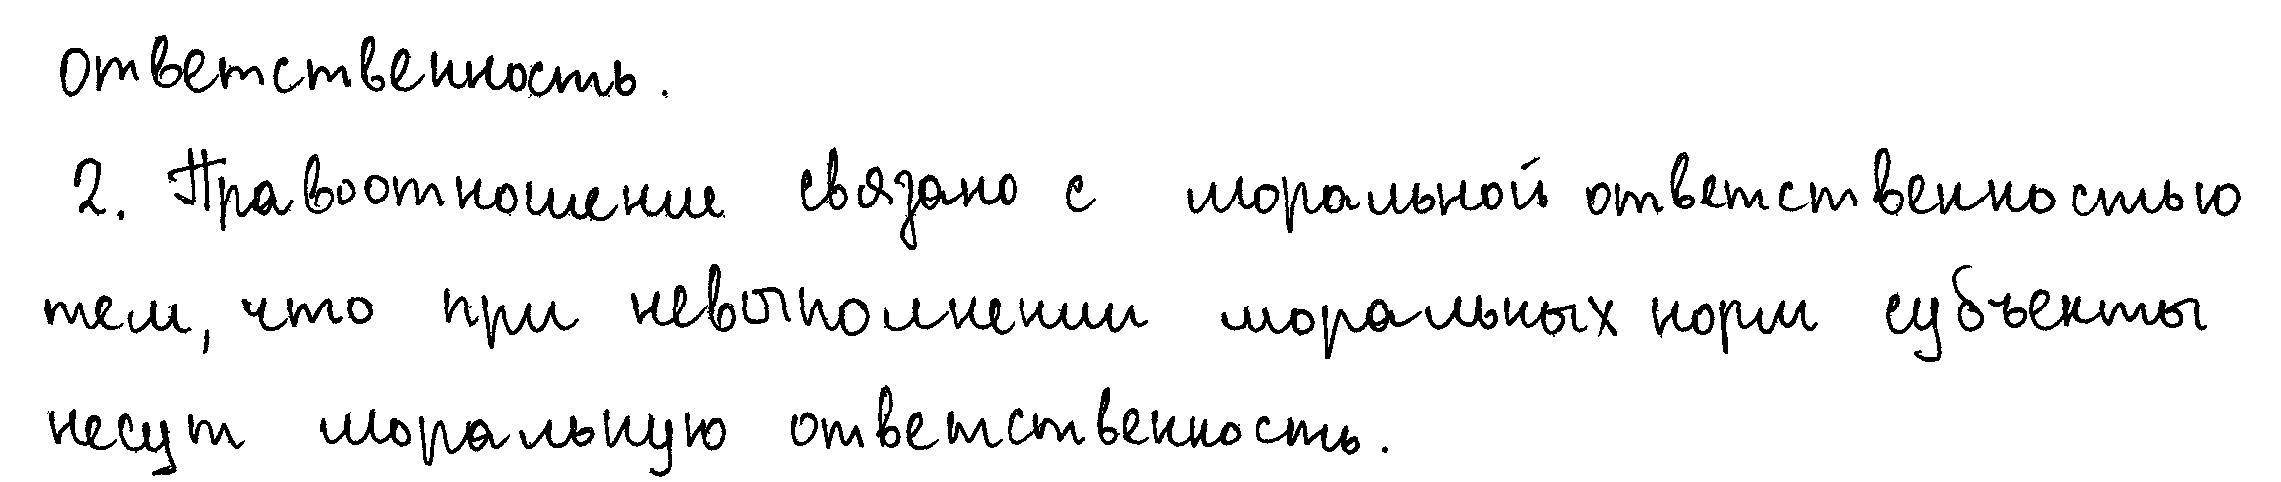 ответственность.
2. Правоотношение связано с моральной ответственностью
тем, что при невыполнении моральных норм субъекты
несут моральную ответственность.